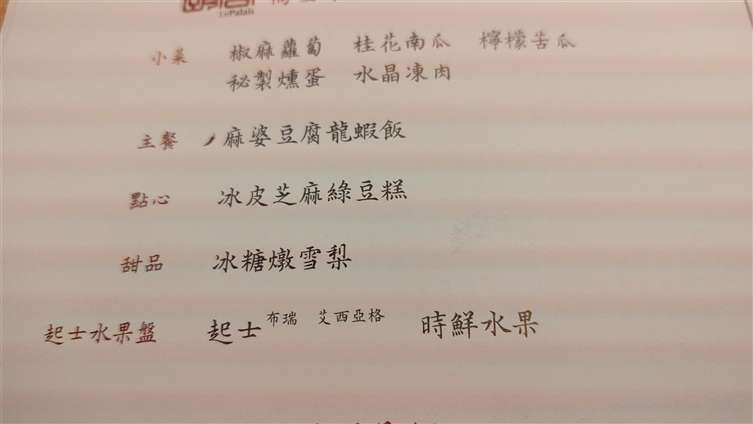 Le Palais
小菜 椒麻蘿蔔 桂花南瓜 檸檬苦瓜
秘製燻蛋 水晶凍肉
主餐 麻婆豆腐龍蝦飯
點心 冰皮芝麻綠豆糕
甜品 冰糖燉雪梨
起士水果盤 起士 布瑞 艾西亞格 時鮮水果